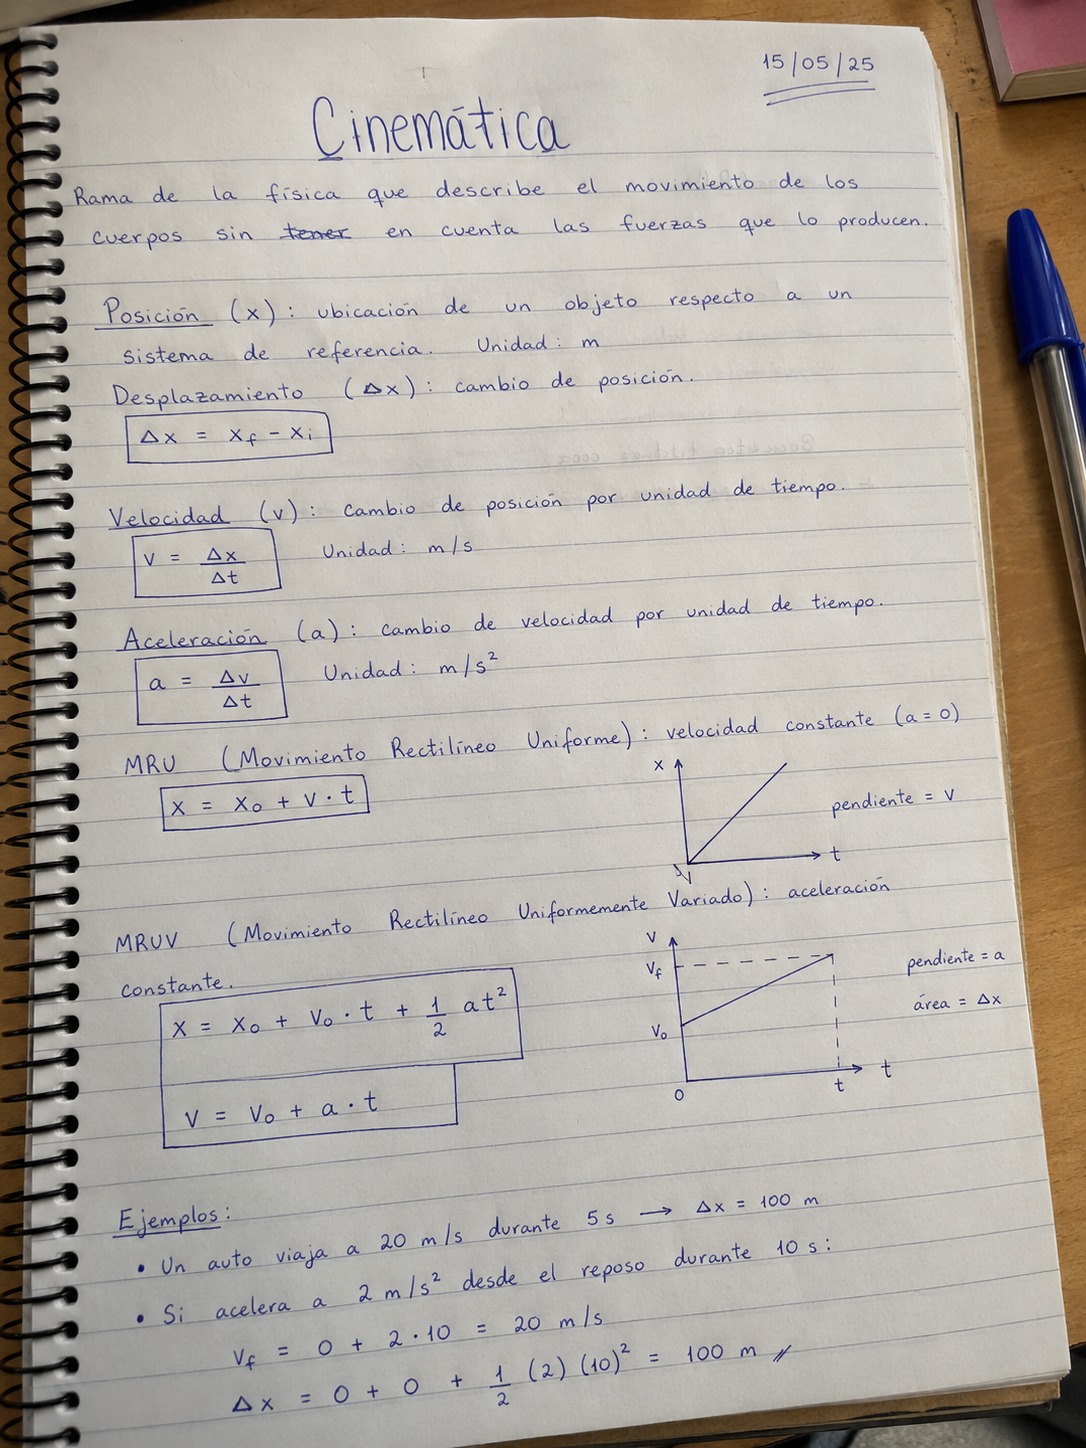 15/05/25
Cinemática
Rama de la física que describe el movimiento de los
cuerpos sin tener en cuenta las fuerzas que lo producen.
Posición (x): ubicación de un objeto respecto a un
sistema de referencia. Unidad: m
Desplazamiento (Δx): cambio de posición.
Δx = xf - xi
Velocidad (v): cambio de posición por unidad de tiempo.
v = Δx/Δt Unidad: m/s
Aceleración (a): cambio de velocidad por unidad de tiempo.
a = Δv/Δt Unidad: m/s²
MRU (Movimiento Rectilíneo Uniforme): velocidad constante (a = 0)
x = x₀ + v · t
x
pendiente = v
t
MRUV (Movimiento Rectilíneo Uniformemente Variado): aceleración
constante.
x = x₀ + v₀ · t + 1/2 at²
v = v₀ + a · t
v
vf
v₀
0
t
t
pendiente = a
área = Δx
Ejemplos:
• Un auto viaja a 20 m/s durante 5 s → Δx = 100 m
• Si acelera a 2 m/s² desde el reposo durante 10 s:
vf = 0 + 2 · 10 = 20 m/s
Δx = 0 + 0 + 1/2 (2) (10)² = 100 m //